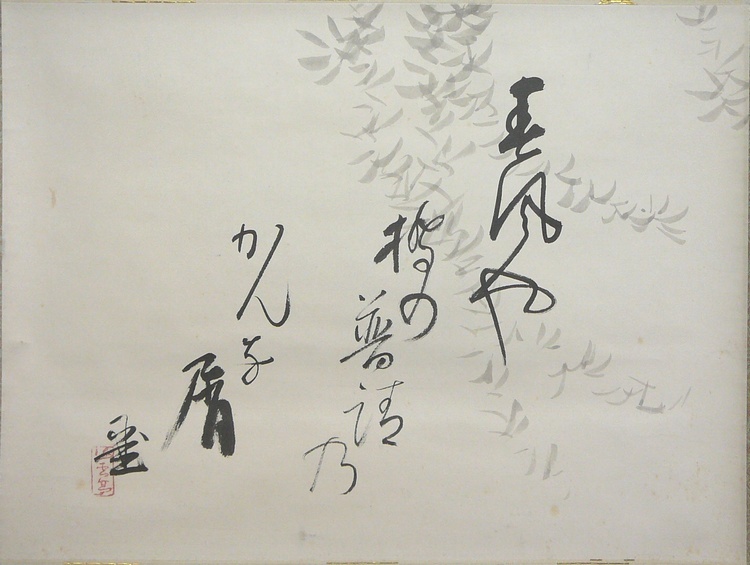 春風や
橋の普請乃
かんな屑